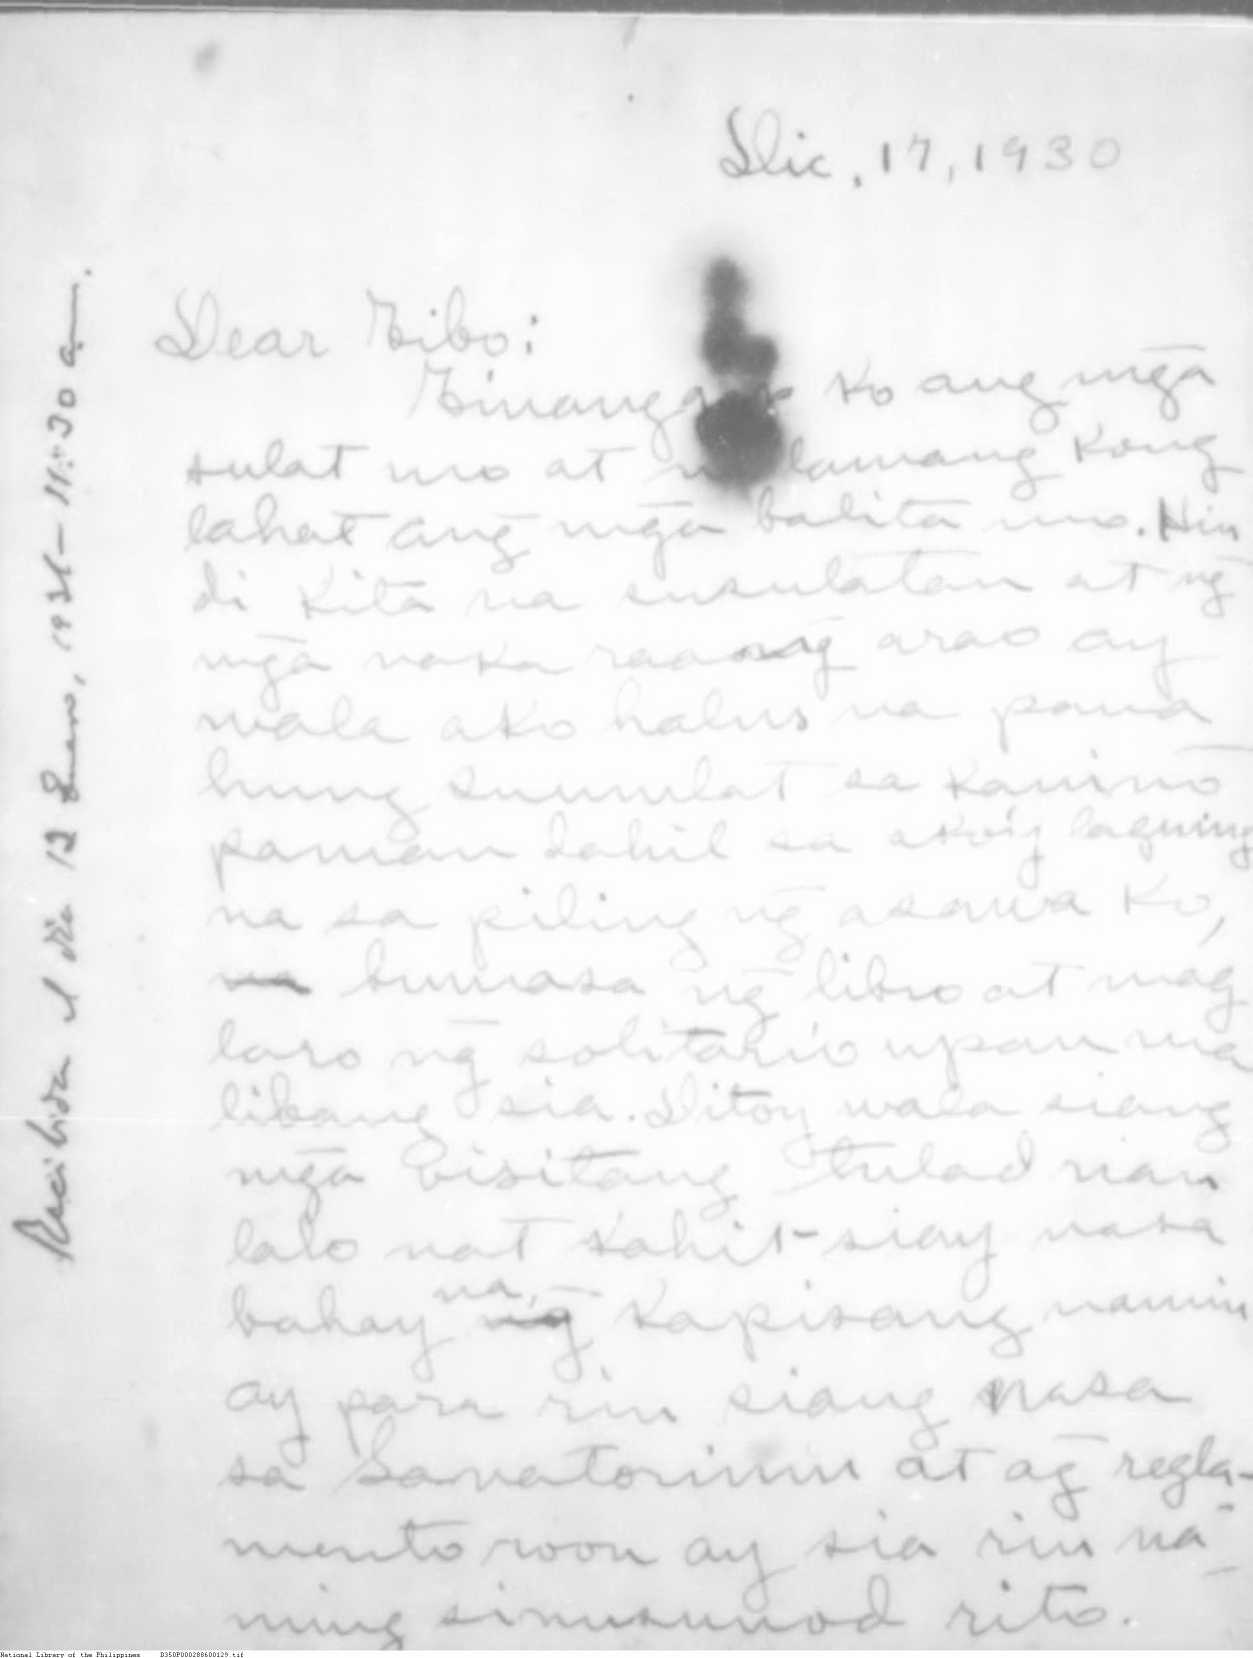 Dic. 17, 1930
Dear Tibo:
Tinanggap ko ang mga
sulat mo at lamang kong
lahat ang mga balita mo. Hin
di kita na susulatan at ng
mga naka raang arao ay
wala ako halus na pana
hung sumulat sa kanino
paman dahil sa ako'y laguing
na sa piling ng asawa ko,
na bumasa ng libro at mag
laro ng solitario upan ma
libang sia. Ditoy wala siang
mga bisitang tulad nan
lalo nat kahit siay nasa
bahay na, ng kapisang namin
ay para rin siang nasa
sa Sanatorium at ag regla-
mento roon ay sia rin na
ming sinusunod rito.
Recibida el día 12 Enero, 1931 - 11:30 a.m.
National Library of the Philippines D350P000288600129.tif